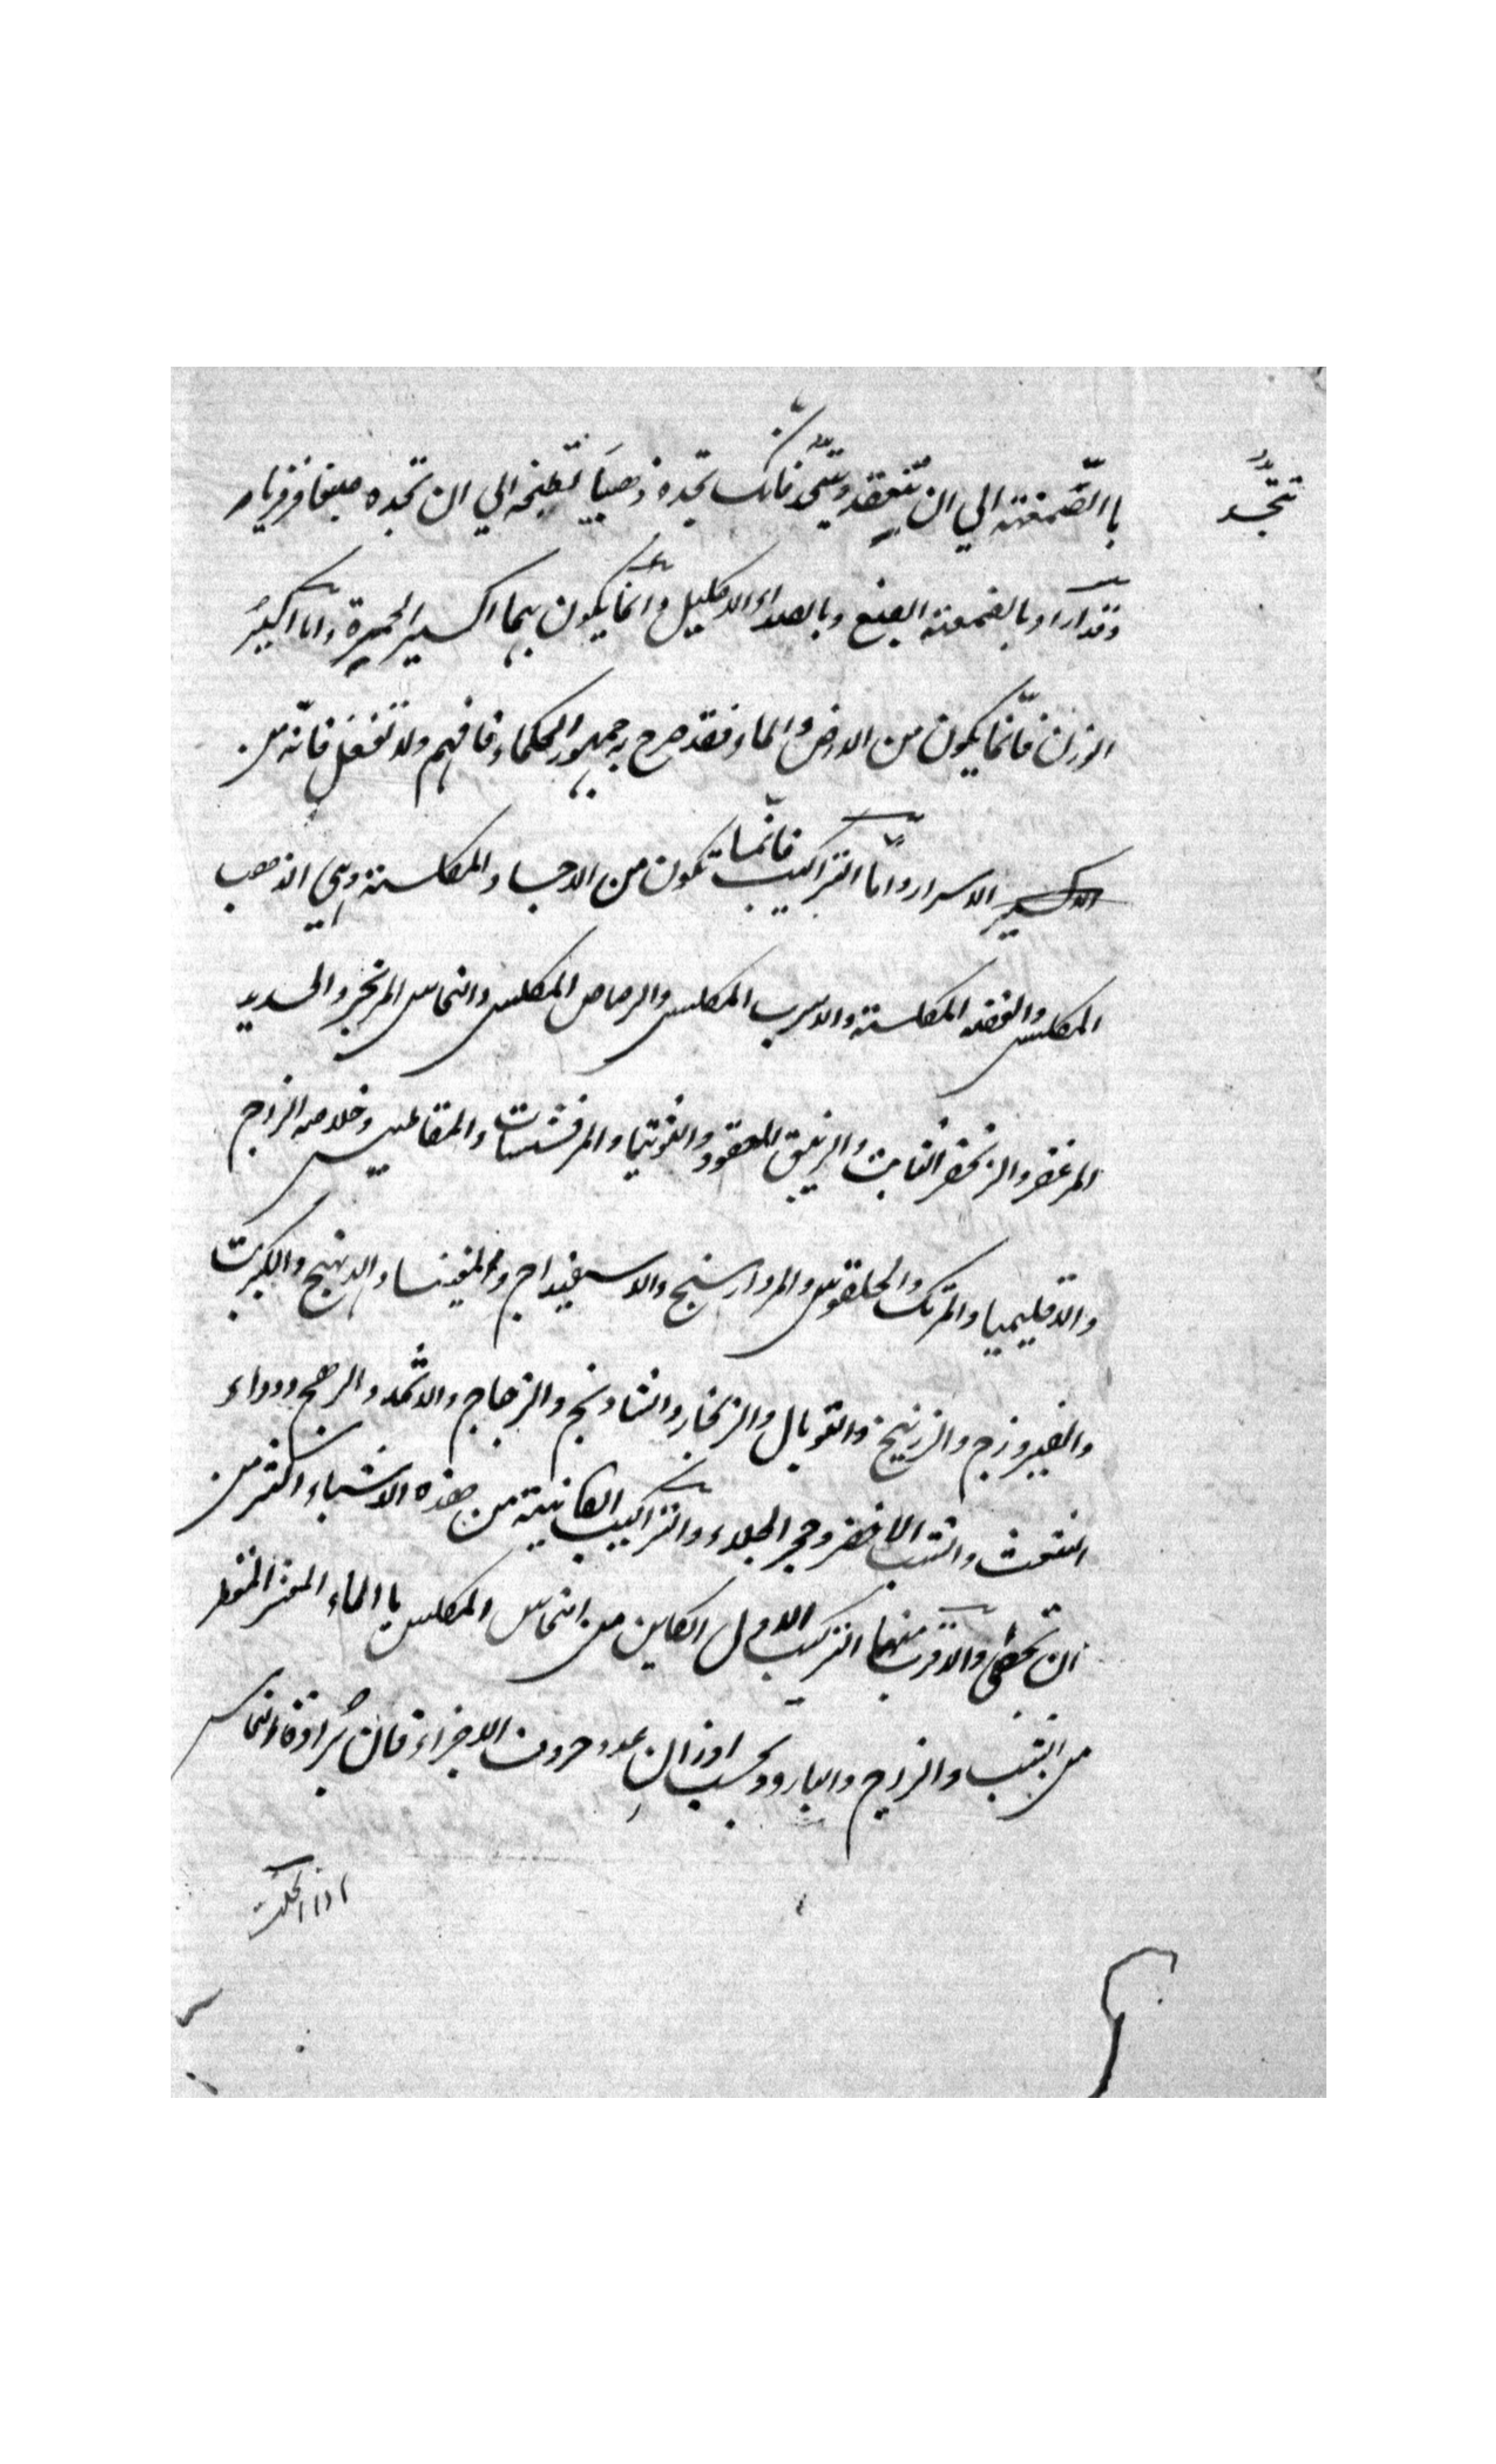 تتجسّد
با الصّمغة الي ان ينعقد ويتحد فانك تجده ذهبيا تطبخه الي ان تجده صبغا فرفريا
وقد ارادوا بالصمغة الصبغ وبالصداء الاكليل وانما يكون بهما اكسير الحمرة واما اكسير
الوزن فانّما يكون من الارض والماء وفقد صرح به جمهور الحكماء فافهم ولا تغفل فانّه من
الاسرار وامّا التراكيب فانّما تكون من الاجساد المكلسة وهي الذهب
المكلس والفضه المكلسة والاسرب المكلس والرصاص المكلس والنحاس المزنجر والحديد
المزعفر والزنجفر الثابت والزيبق المعقود والتوتيا والمرقشيثات والمقناطيس وخلاصه الزاج
والاقليميا والمرتك والحلقوس والمردارسنج والاسفيداج والمغنيسا والدهنج والكبريت
والفيروزج والزرنيخ والتوبال والزنجار والشادنج والزجاج والاثمد والرهج ودواء
النفث والشب الاخضر وحجر الجلاء والتراكيب الكائنية من هذه الاشياء اكثر من
ان تحصى والاقرب منها التركيب الاول الكاين من النحاس المكلس با الماء المقطر
من الشب والزاج والبارود بحسب اوزان عدد حروف الاجزاء فان بُرادة النحاس
اذا انحلت